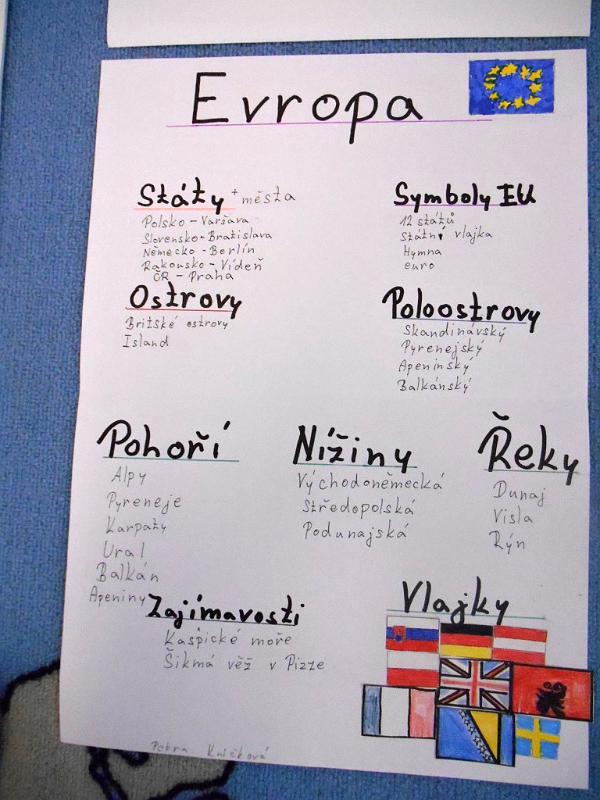 Evropa
Státy + města
Polsko - Varšava
Slovensko - Bratislava
Německo - Berlín
Rakousko - Vídeň
ČR - Praha
Symboly EU
12 států
státní vlajka
Hymna
euro
Ostrovy
Britské ostrovy
Island
Poloostrovy
Skandinávský
Pyrenejský
Apeninský
Balkánský
Pohoří
Alpy
Pyreneje
Karpaty
Ural
Balkán
Apeniny
Nížiny
Východoněmecká
Středopolská
Podunajská
Řeky
Dunaj
Visla
Rýn
Zajímavosti
Kaspické moře
Šikmá věž v Pizze
Vlajky
Petra